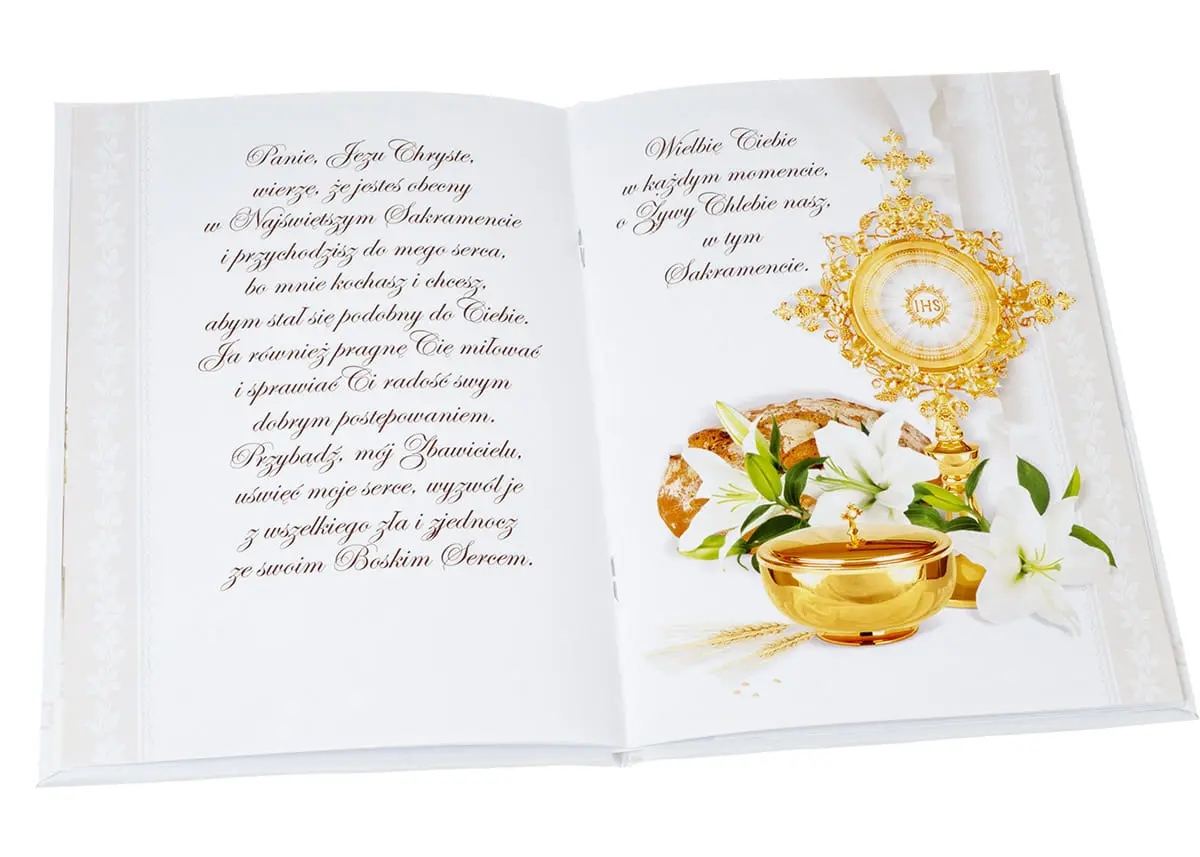 Panie, Jezu Chryste,
wierzę, że jesteś obecny
w Najświętszym Sakramencie
i przychodzisz do mego serca,
bo mnie kochasz i chcesz,
abym stał się podobny do Ciebie.
Ja również pragnę Cię miłować
i sprawiać Ci radość swym
dobrym postępowaniem.
Przybądź, mój Zbawicielu,
uświęć moje serce, wyzwól je
z wszelkiego zła i zjednocz
ze swoim Boskim Sercem.
Wielbię Ciebie
w każdym momencie,
o Żywy Chlebie nasz,
w tym
Sakramencie.
IHS